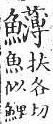 扶各切
魚似鯉